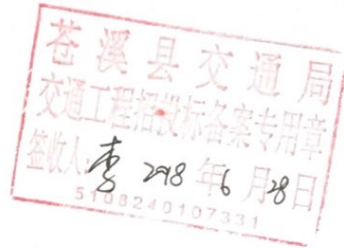 苍溪县交通局
交通工程招投标备案专用章
签收人 李 2018年6月28日
5108240107331